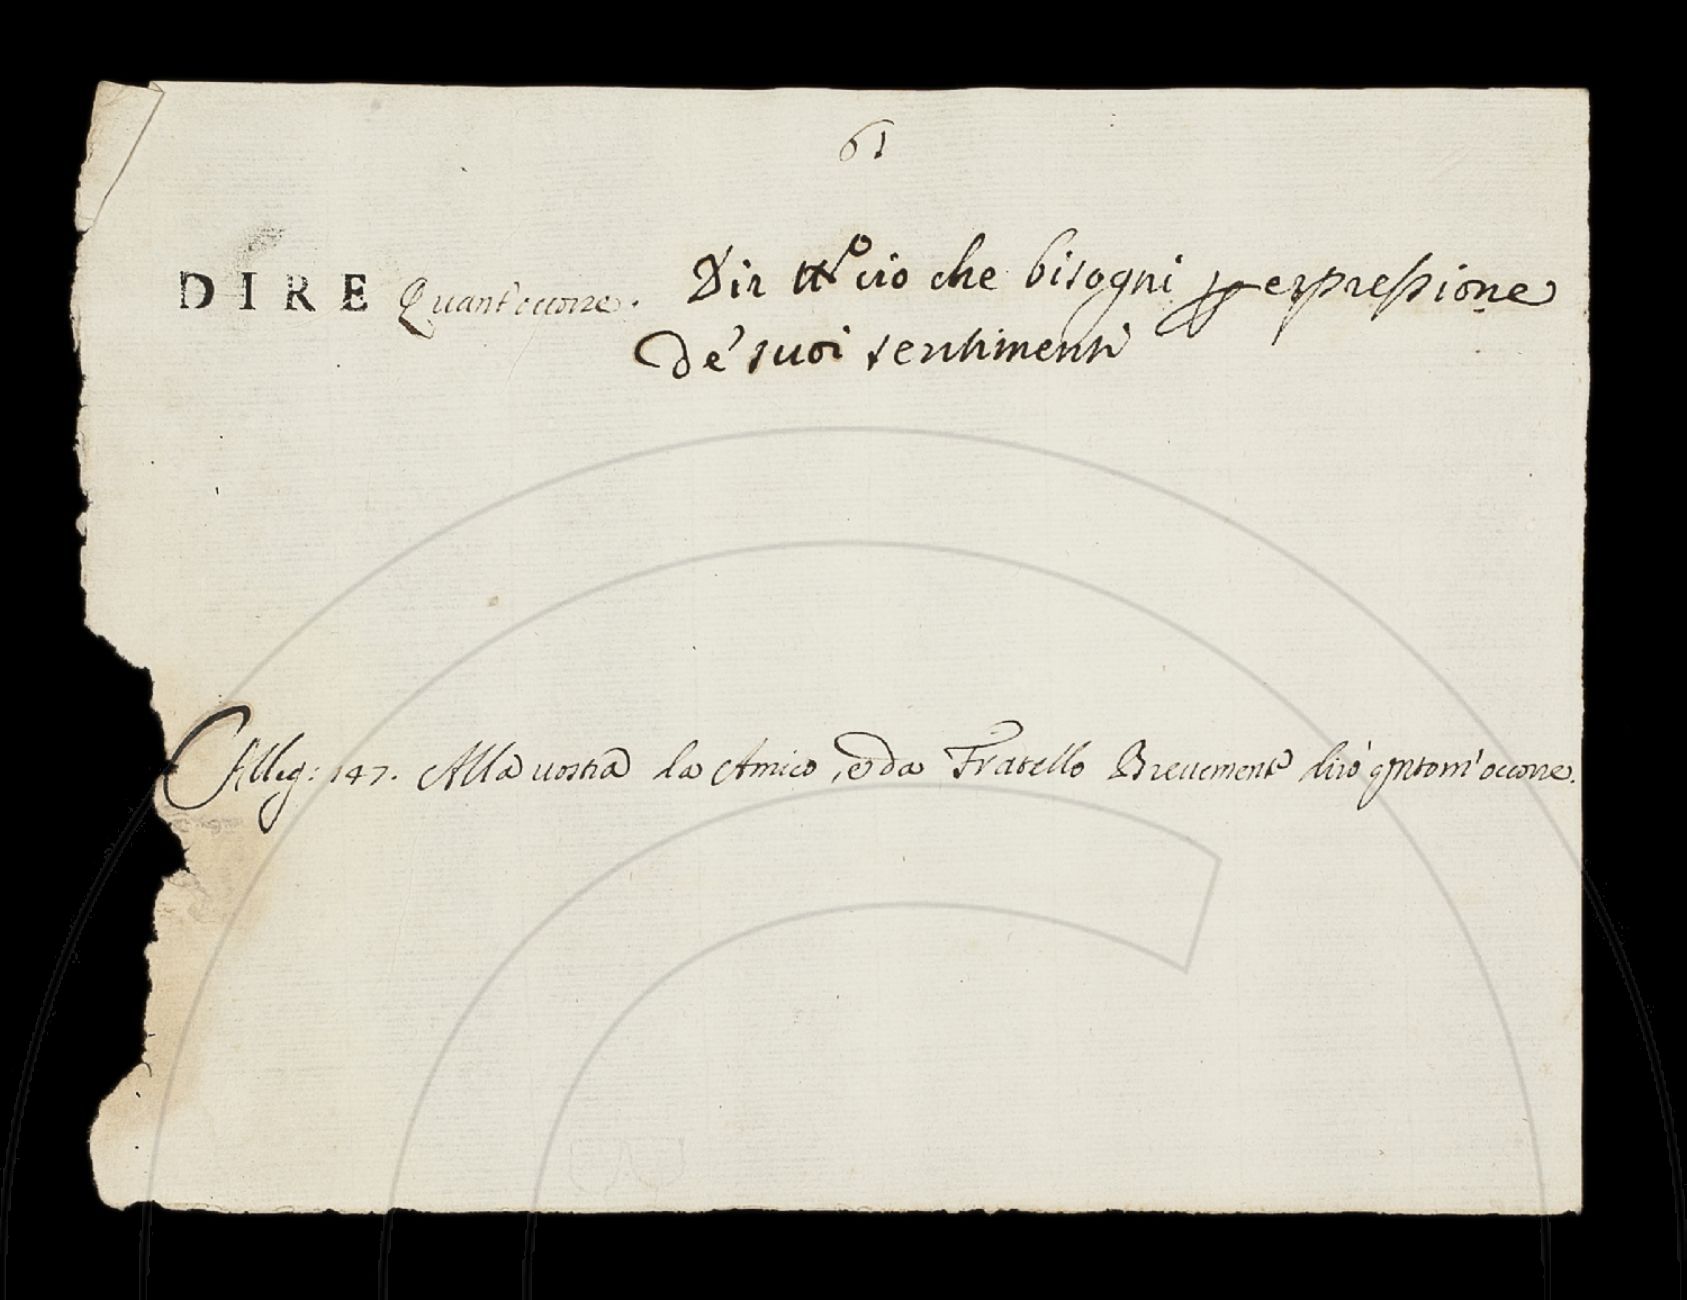 61
DIRE Quant'occorre. Dir tt.º ciò che bisogni p espressione
de' suoi sentimenti
Alleg: 147. Alla vostra la Amico, e da Fratello Brevemente dirò qnto m'occorre.